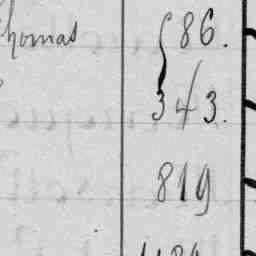 Thomas { 86.
343.
819